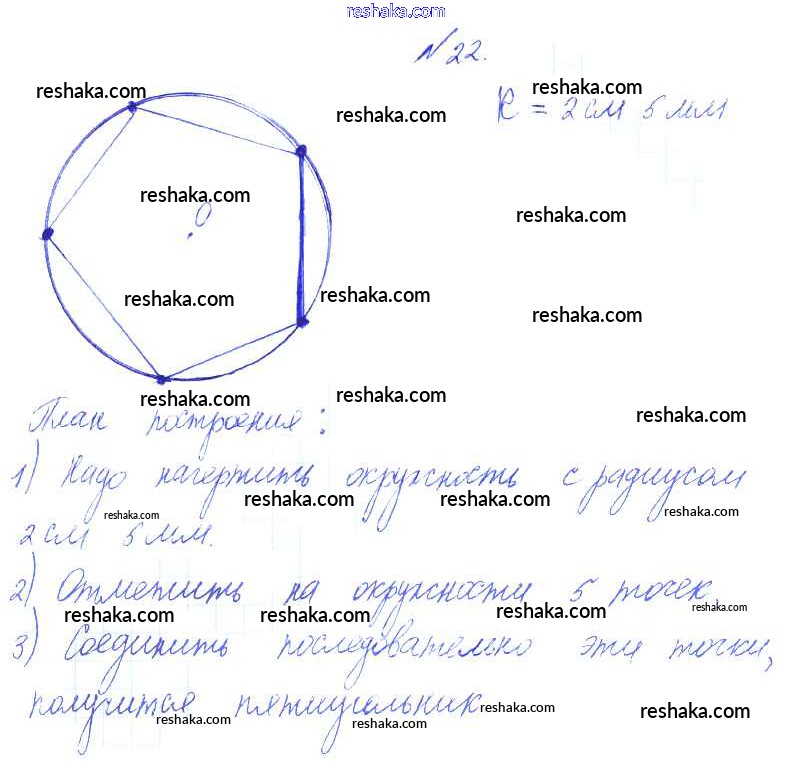 reshaka.com
№ 22.
reshaka.com
reshaka.com
R = 2 см 5 мм
reshaka.com
reshaka.com
O
reshaka.com
reshaka.com
reshaka.com
reshaka.com
reshaka.com
reshaka.com
reshaka.com
План построения:
1) Надо начертить окружность с радиусом
reshaka.com
reshaka.com
reshaka.com
reshaka.com
2 см 5 мм.
2) Отметить на окружности 5 точек
reshaka.com
reshaka.com
reshaka.com
reshaka.com
3) Соединить последовательно эти точки,
получится пятиугольник
reshaka.com
reshaka.com
reshaka.com
reshaka.com